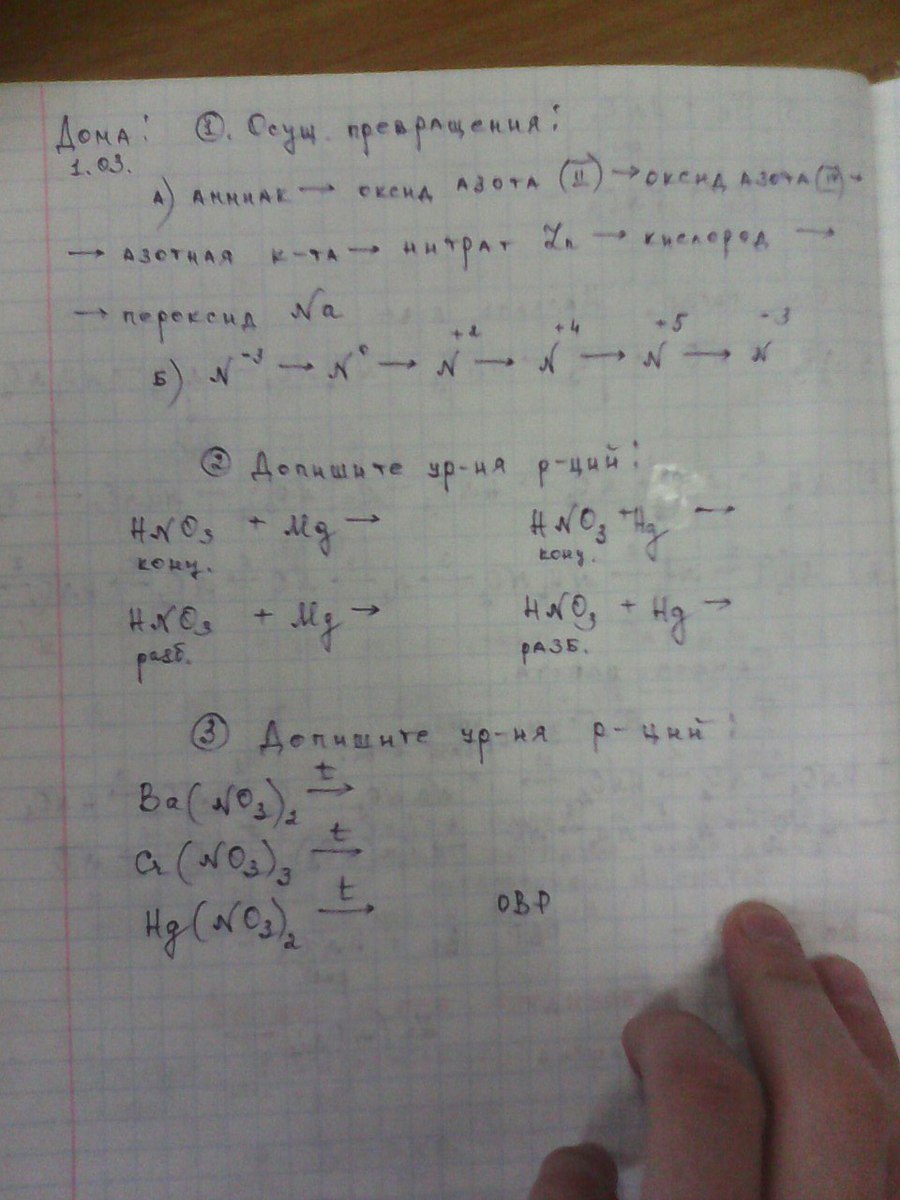 Дома: ①. Осущ. превращения:
1.03.
А) аммиак → оксид азота (II) → оксид азота (IV) →
→ азотная к-та → нитрат Zn → кислород →
→ пероксид Na
Б) N⁻³ → N⁰ → N⁺² → N⁺⁴ → N⁺⁵ → N⁻³
② Допишите ур-ия р-ций:
HNO₃ + Mg → HNO₃ + Hg →
конц. конц.
HNO₃ + Mg → HNO₃ + Hg →
разб. разб.
③ Допишите ур-ия р-ций:
Ba(NO₃)₂ t→
Cr(NO₃)₃ t→
Hg(NO₃)₂ t→ ОВР